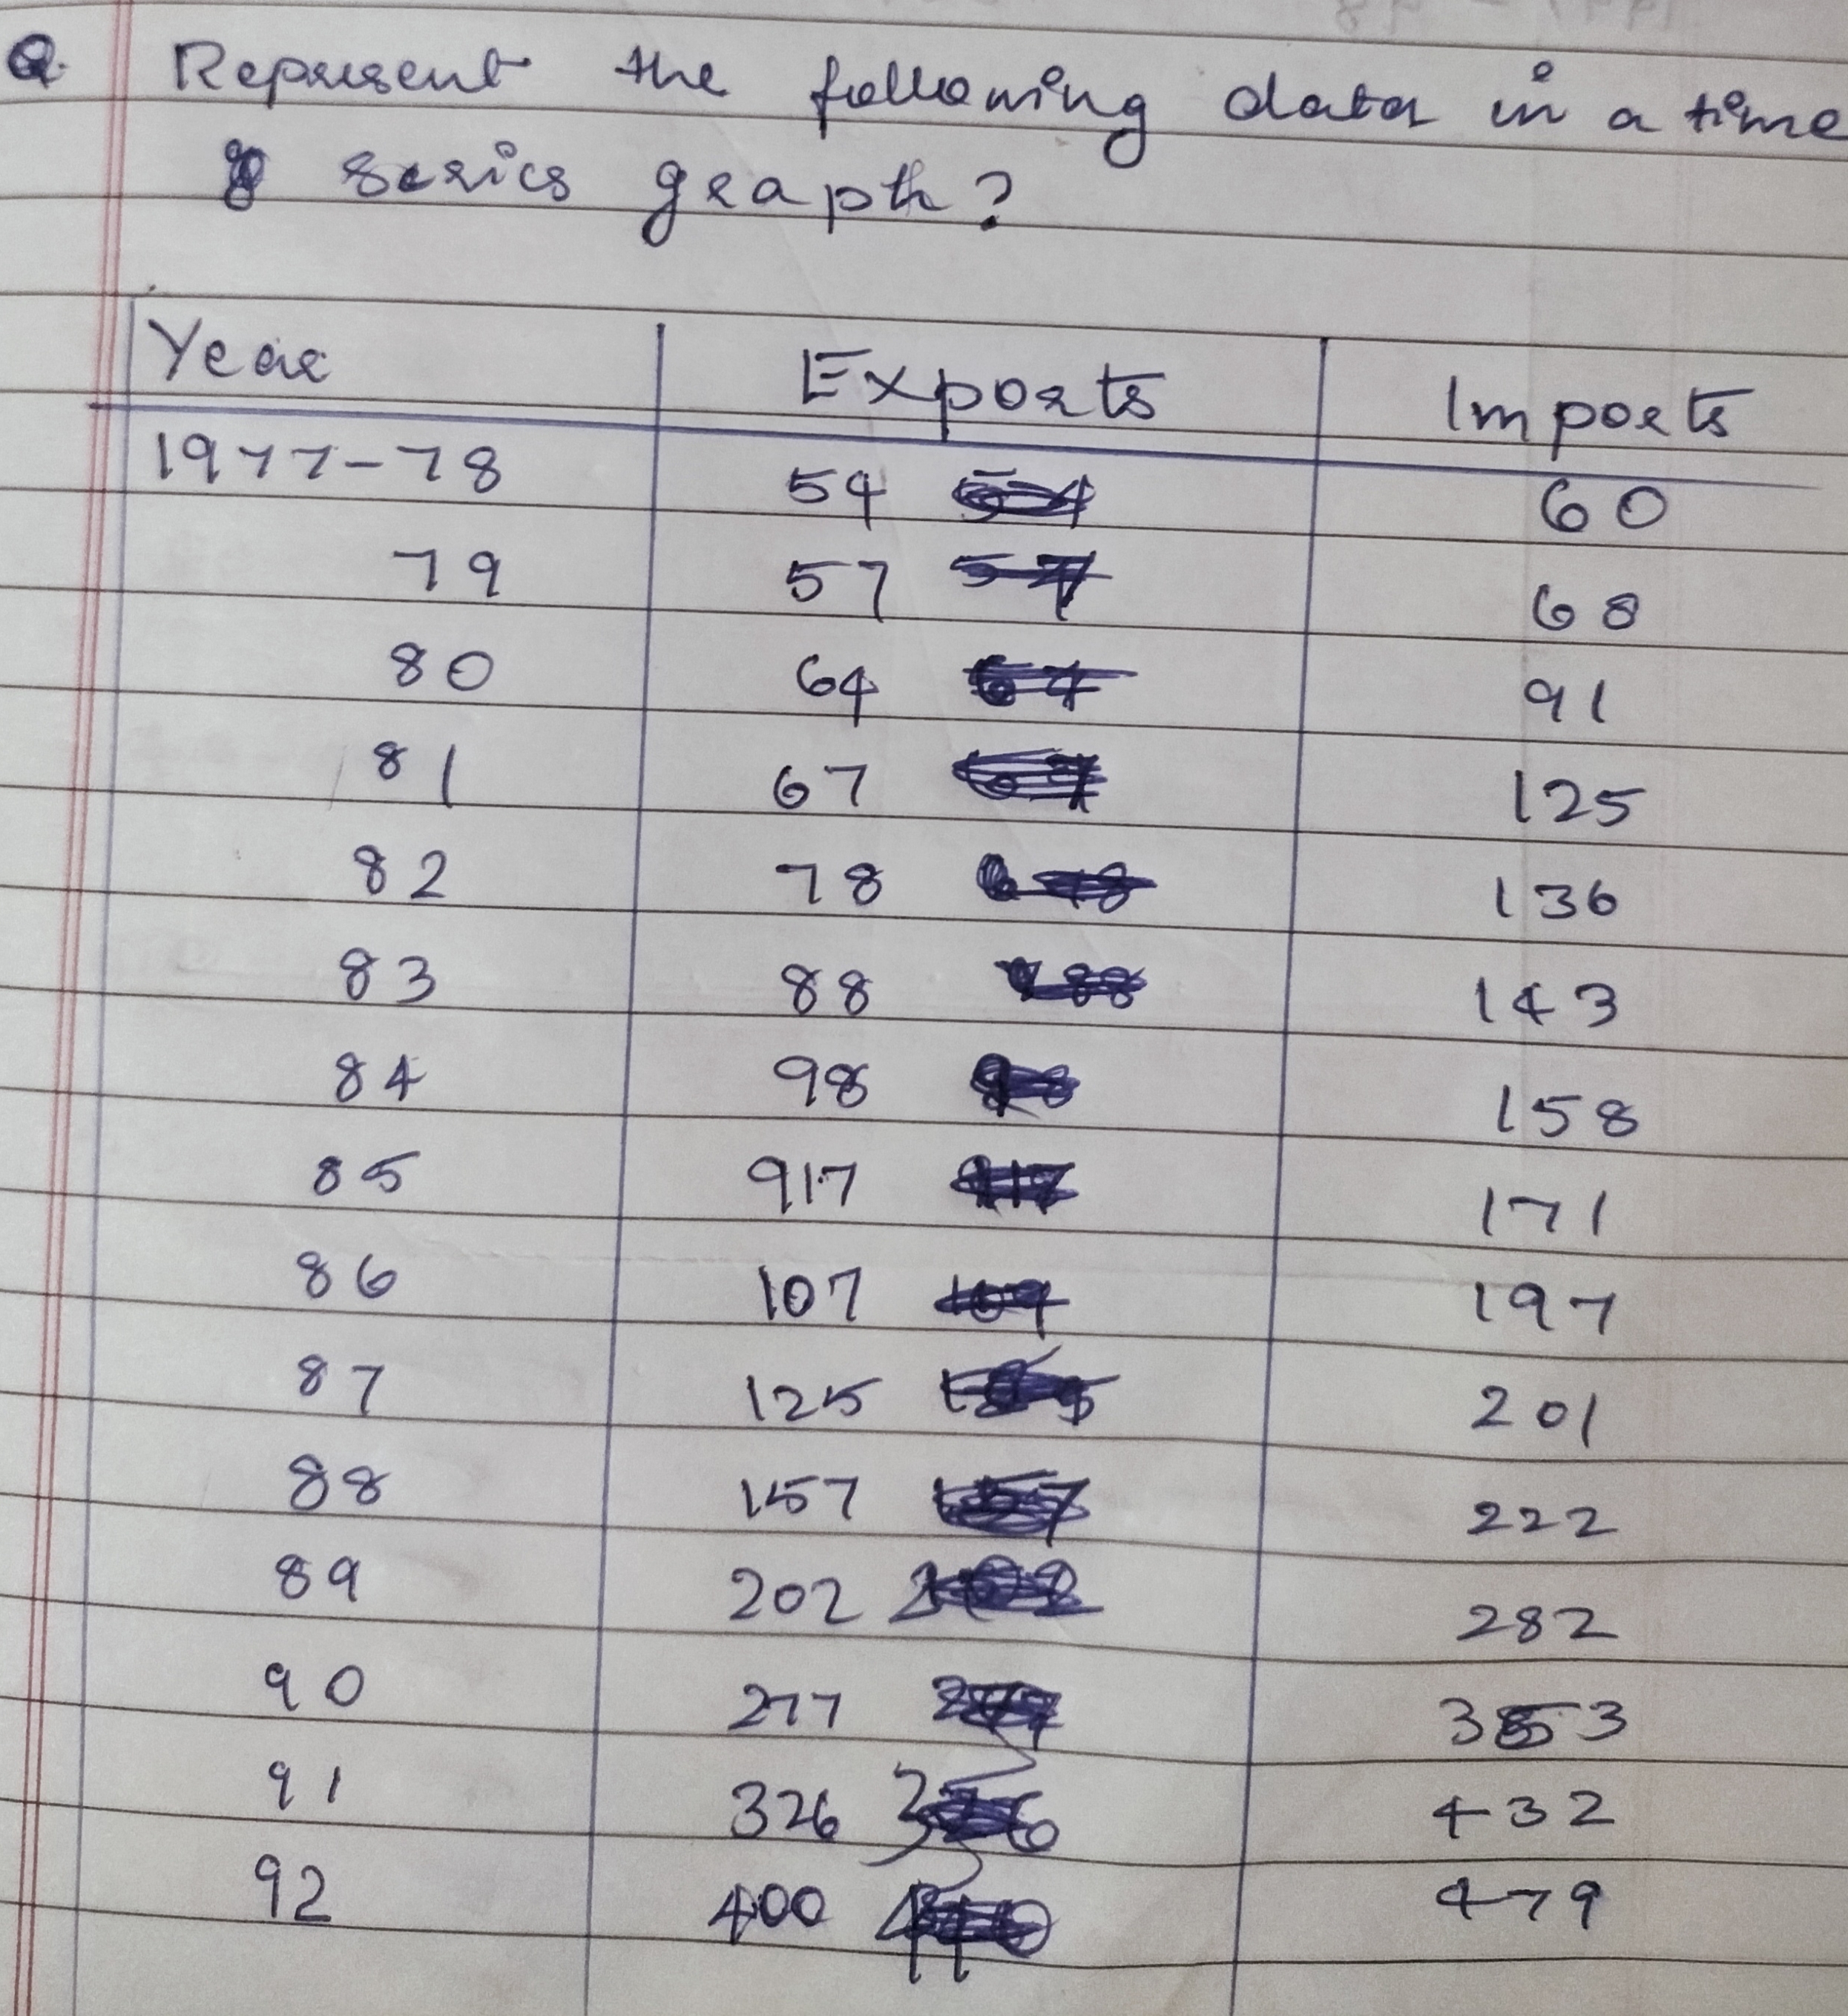 Q. Represent the following data in a time
series graph?
Year Exports Imports
1977-78 54 60
79 57 68
80 64 91
81 67 125
82 78 136
83 88 143
84 98 158
85 917 171
86 107 197
87 125 201
88 157 222
89 202 282
90 277 353
91 326 432
92 400 479